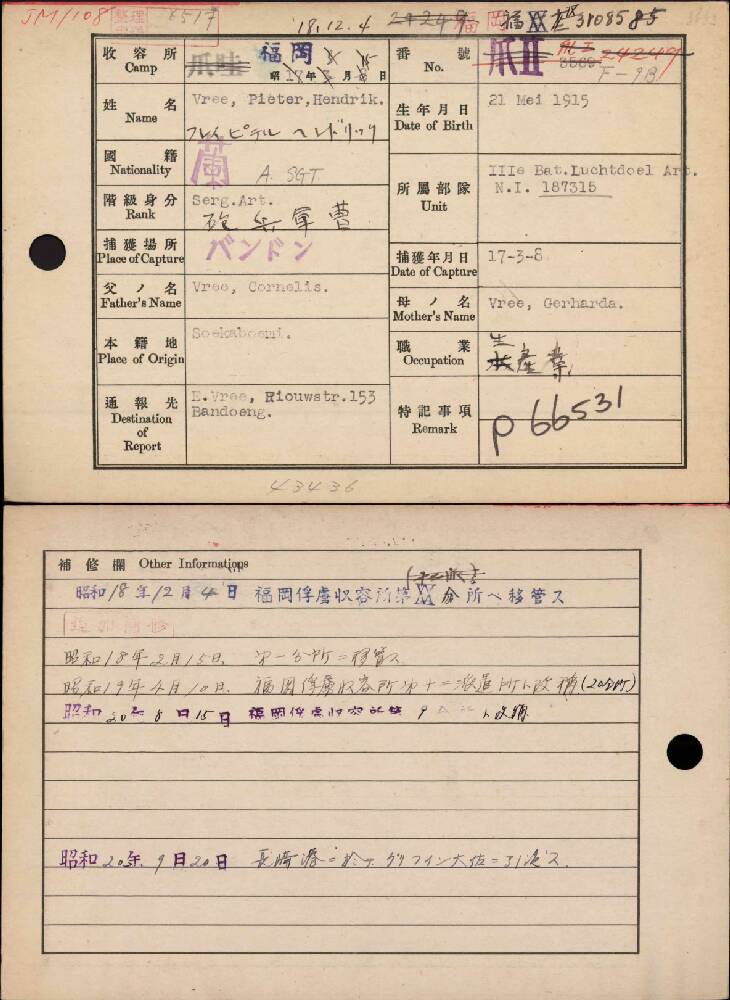 JM/108 整理 6517 18.12.4 24249 福岡 3108585
收容所 Camp 爪哇 福岡 昭17年 月 日
番號 No. 爪II 3569 24249 F-9B
姓名 Name Vree, Pieter, Hendrik.
フレイ ピーテル ヘンドリック
生年月日 Date of Birth 21 Mei 1915
國籍 Nationality 蘭 A. SGT
階級身分 Rank Serg.Art. 砲兵軍曹
所屬部隊 Unit IIIe Bat.Luchtdoel Art.
N.I. 187315
捕獲場所 Place of Capture バンドン
捕獲年月日 Date of Capture 17-3-8
父ノ名 Father's Name Vree, Cornelis.
母ノ名 Mother's Name Vree, Gerharda.
本籍地 Place of Origin Soekaboemi.
職業 Occupation 生産業
通報先 Destination of Report E.Vree, Riouwstr.153
Bandoeng.
特記事項 Remark P 66531
43436
補修欄 Other Informations
昭和18年12月4日 福岡俘虜収容所第 分所ヘ移管ス
昭和18年2月15日 第一分所ニ移管ス
昭和19年4月10日 福岡俘虜収容所第十二派遣所ト改稱(20分所)
昭和20年8月15日 福岡俘虜収容所第9分所ト改稱
昭和20年9月20日 長崎港ニ於テグリフイン大佐ニ引渡ス